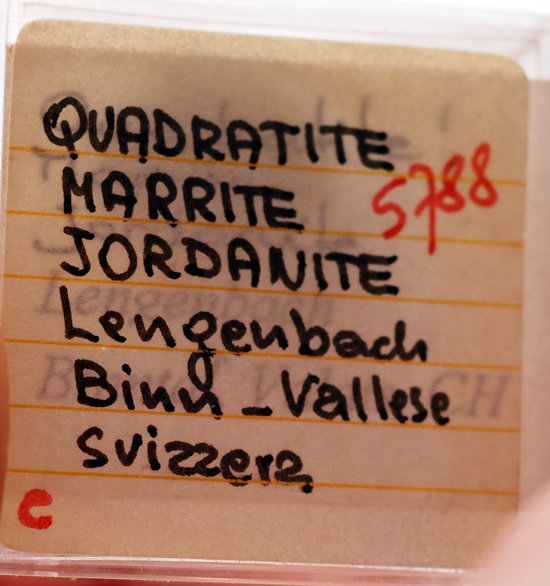 QUADRATITE
MARRITE
5788
JORDANITE
Lengenbach
Binn - Vallese
CH
svizzera
C